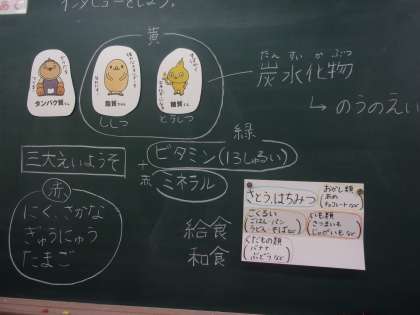 インタビューをしよう。
黄
タンパク質さん
脂質さん
糖質さん
ししつ
とうしつ
たんすいかぶつ
炭水化物
↳ のうのえい
三大えいようそ
緑
+ ビタミン(13しゅるい)
赤 ミネラル
赤
にく、さかな
ぎゅうにゅう
たまご
給食
和食
さとう、はちみつ
おかし類
あめ
チョコレートなど
こくるい
ごはん パン
うどん そばなど
いも類
さつまいも
じゃがいもなど
くだもの類
バナナ
ぶどうなど